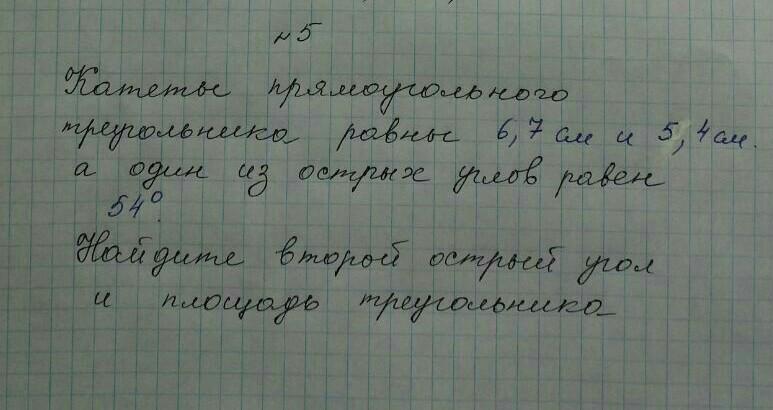 №5
Катеты прямоугольного
треугольника равны 6,7 см и 5,4 см.
а один из острых углов равен
54°.
Найдите второй острый угол
и площадь треугольника